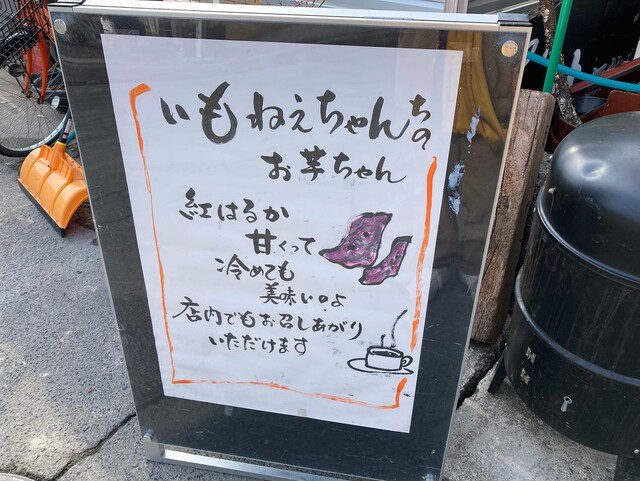 いもねえちゃんちの
お芋ちゃん
紅はるか
甘くって
冷めても
美味いのよ
店内でもお召しあがり
いただけます